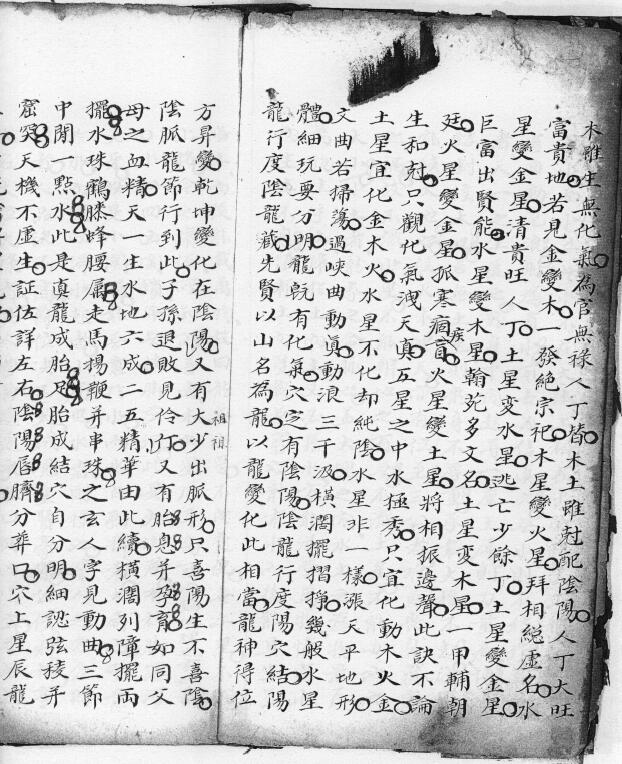 木雖生無化氣為官無祿人丁皆木土雖尅配陰陽人丁大旺
富貴地若見金變木一發絕宗祀木星變火星拜相縂虛名水
星變金星清貴旺人丁土星变水星逃亡少餘丁土星變金星
巨富出賢能水星變木星翰苑多文名土星变木星一甲輔朝
廷火星變金星孤寒痼疾盲火星變土星將相振邊聲此訣不論
生和尅只觀化氣洩天真五星之中水極秀只宜化動木火金
土星宜化金木火水星不化却純陰水星非一樣漲天平地形
文曲若掃蕩過峽曲動眞動浪三千汲橫濶擺摺掙幾般水星
體細玩要分明龍旣有化氣穴定有陰陽陰龍行度陽穴結陽
龍行度陰龍藏先賢以山名為龍以龍變化此相當龍神得位
祖祖
方昇變乾坤變化在陰陽又有大少出脈形只喜陽生不喜陰
陰脈龍節行到此子孫退敗見伶仃又有胎息并孕育如同父
母之血精天一生水地六成二五精華由此續橫濶列障擺兩
擺水珠鶴膝蜂腰屬走馬揚鞭并串珠之玄人字見動曲三節
中間一點水此是眞龍成胎足胎成結穴自分明細認弦稜并
窟突天機不虛生証佐詳左右陰陽唇臍分葬口穴上星辰龍